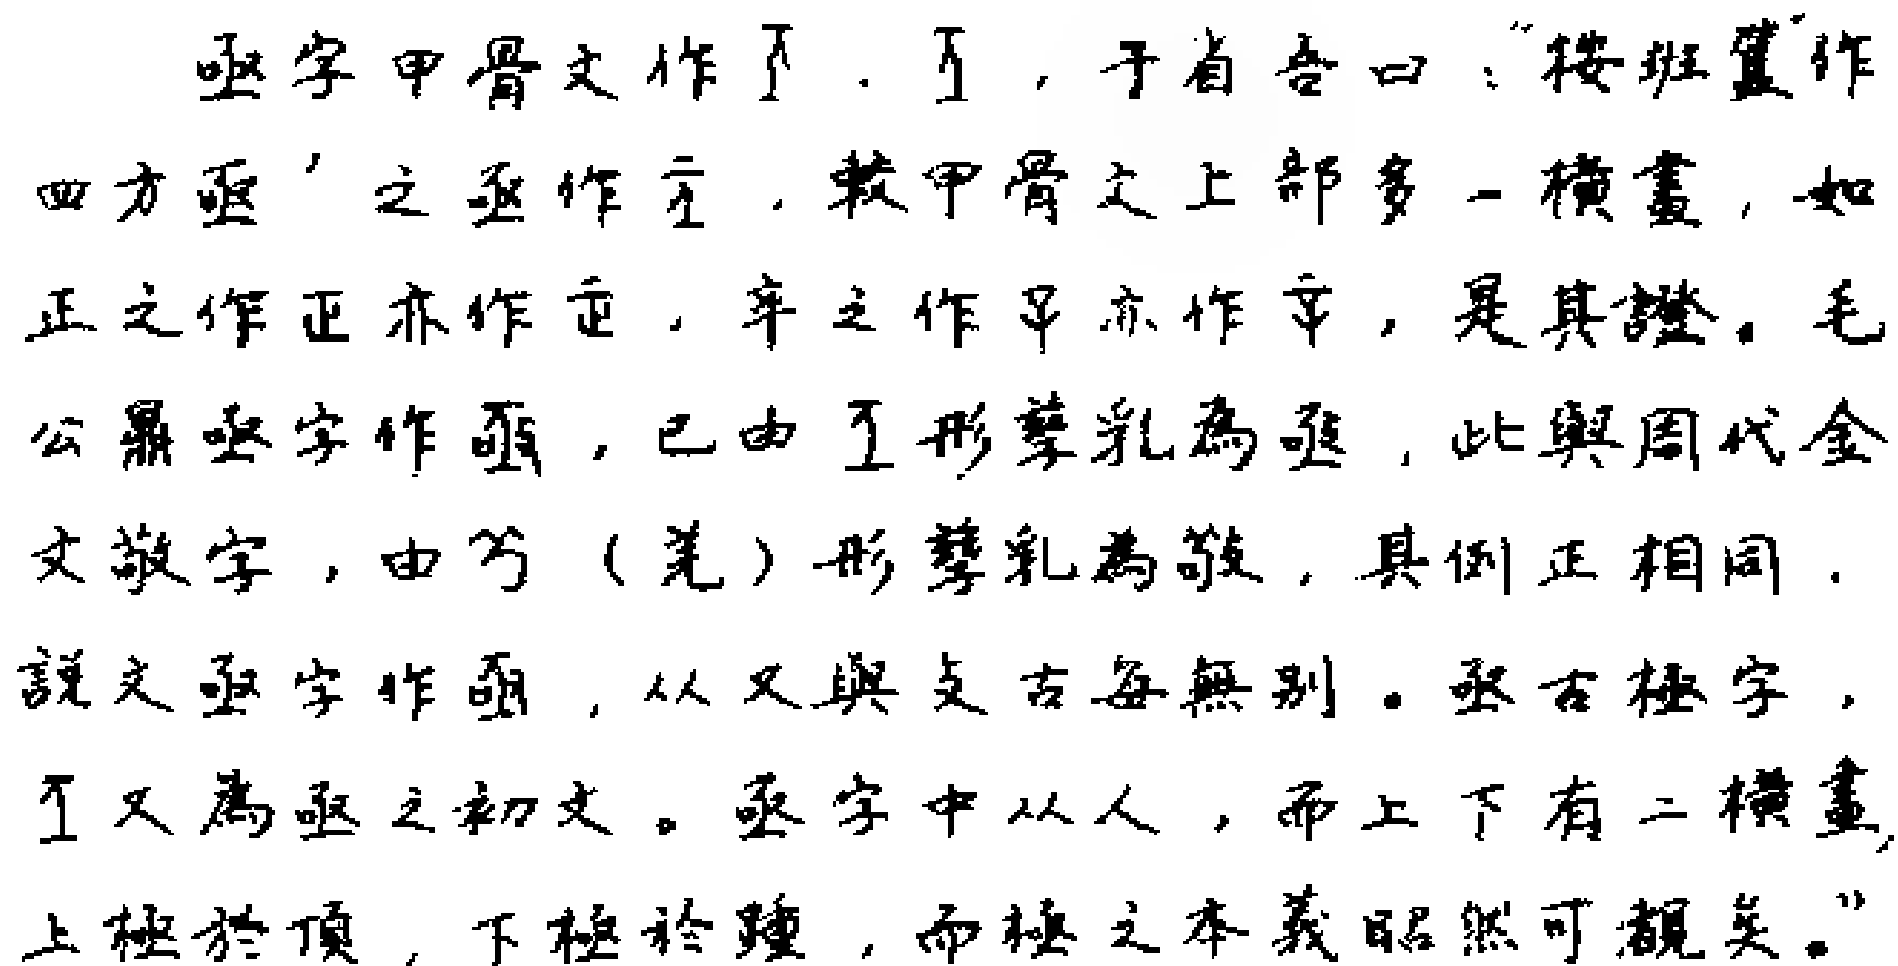 亟字甲骨文作、,于省吾曰:“按班簋‘作
四方亟’之亟作,較甲骨文上部多一橫畫,如
正之作亦作,辛之作亦作,是其證。毛
公鼎亟字作,已由形孳乳為亟,此與周代金
文敬字,由(羌)形孳乳為敬,其例正相同.
說文亟字作,从又與攴古每無別。亟古極字,
又為亟之初文。亟字中从人,而上下有二橫畫,
上極於頂,下極於踵,而極之本義昭然可覩矣。”